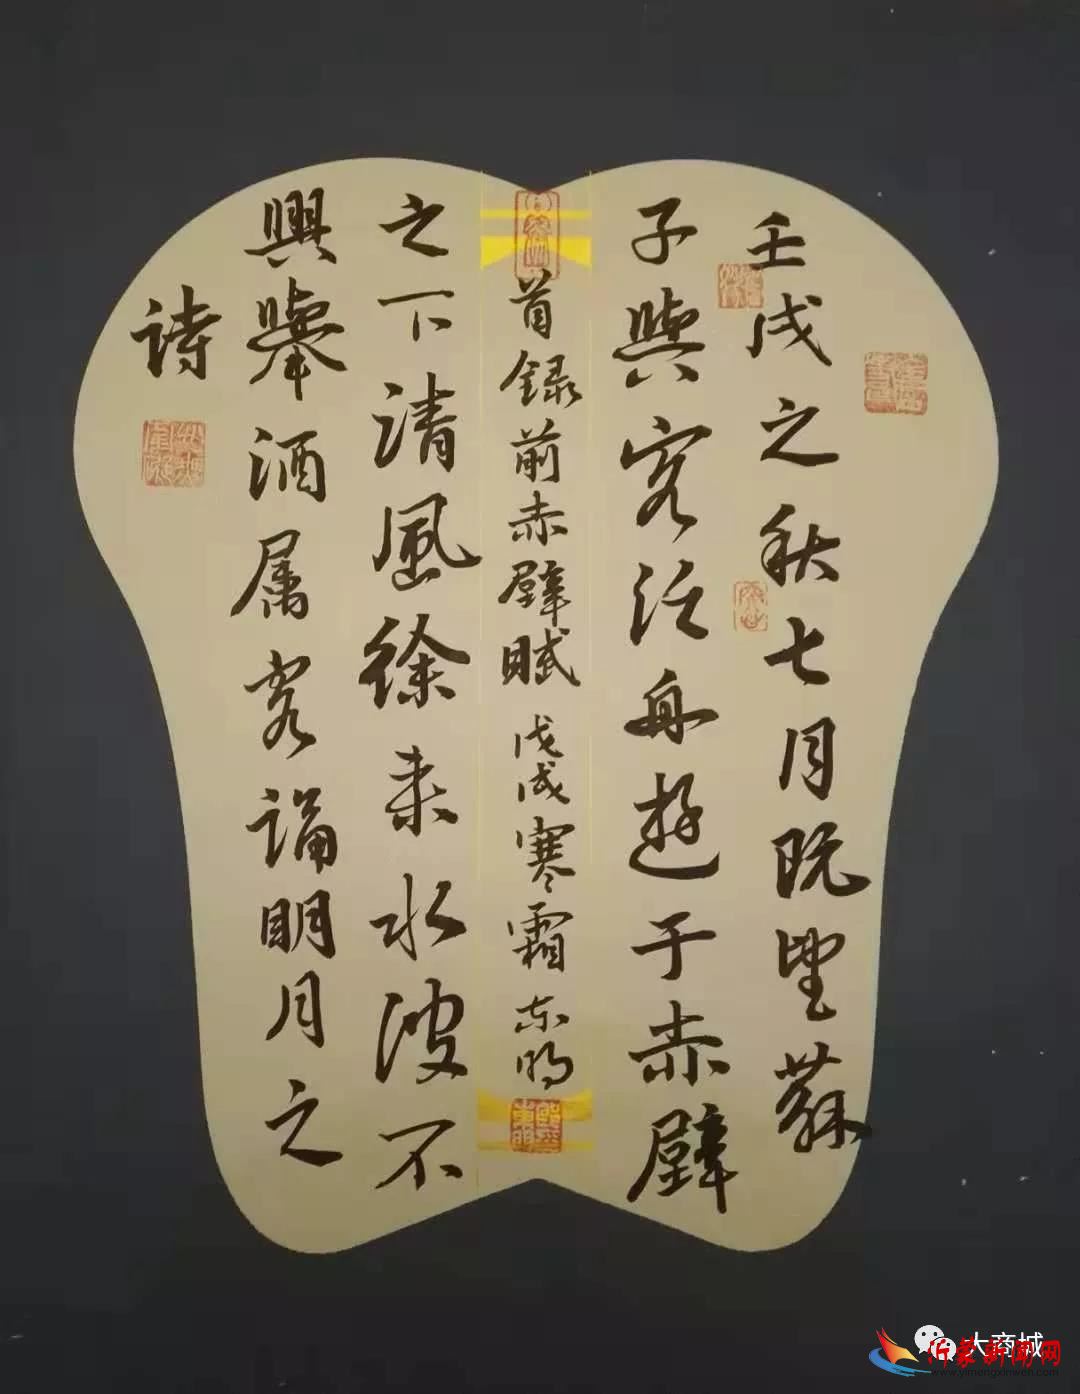 壬戌之秋七月既望蘇
子與客泛舟遊于赤壁
之下清風徐来水波不
興舉酒属客誦明月之
诗
首録前赤壁賦戊戌寒霜东明
大商城
沂蒙新闻网
www.yimengxinwen.com